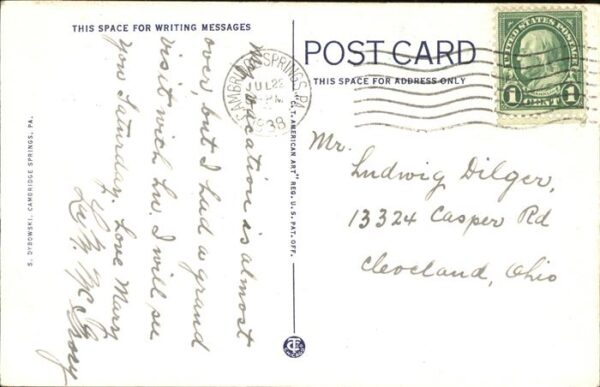 THIS SPACE FOR WRITING MESSAGES
My vacation is almost
over, but I had a grand
visit with Lu. I will see
you Saturday. Love Mary
POST CARD
THIS SPACE FOR ADDRESS ONLY
CAMBRIDGE SPRINGS, PA.
JUL 22
1938
UNITED STATES POSTAGE
1 CENT 1
Mr. Ludwig Dilger,
13324 Casper Rd
Cleveland, Ohio
"C.T. AMERICAN ART" REG. U.S. PAT. OFF.
S. DYBOWSKI, CAMBRIDGE SPRINGS, PA.